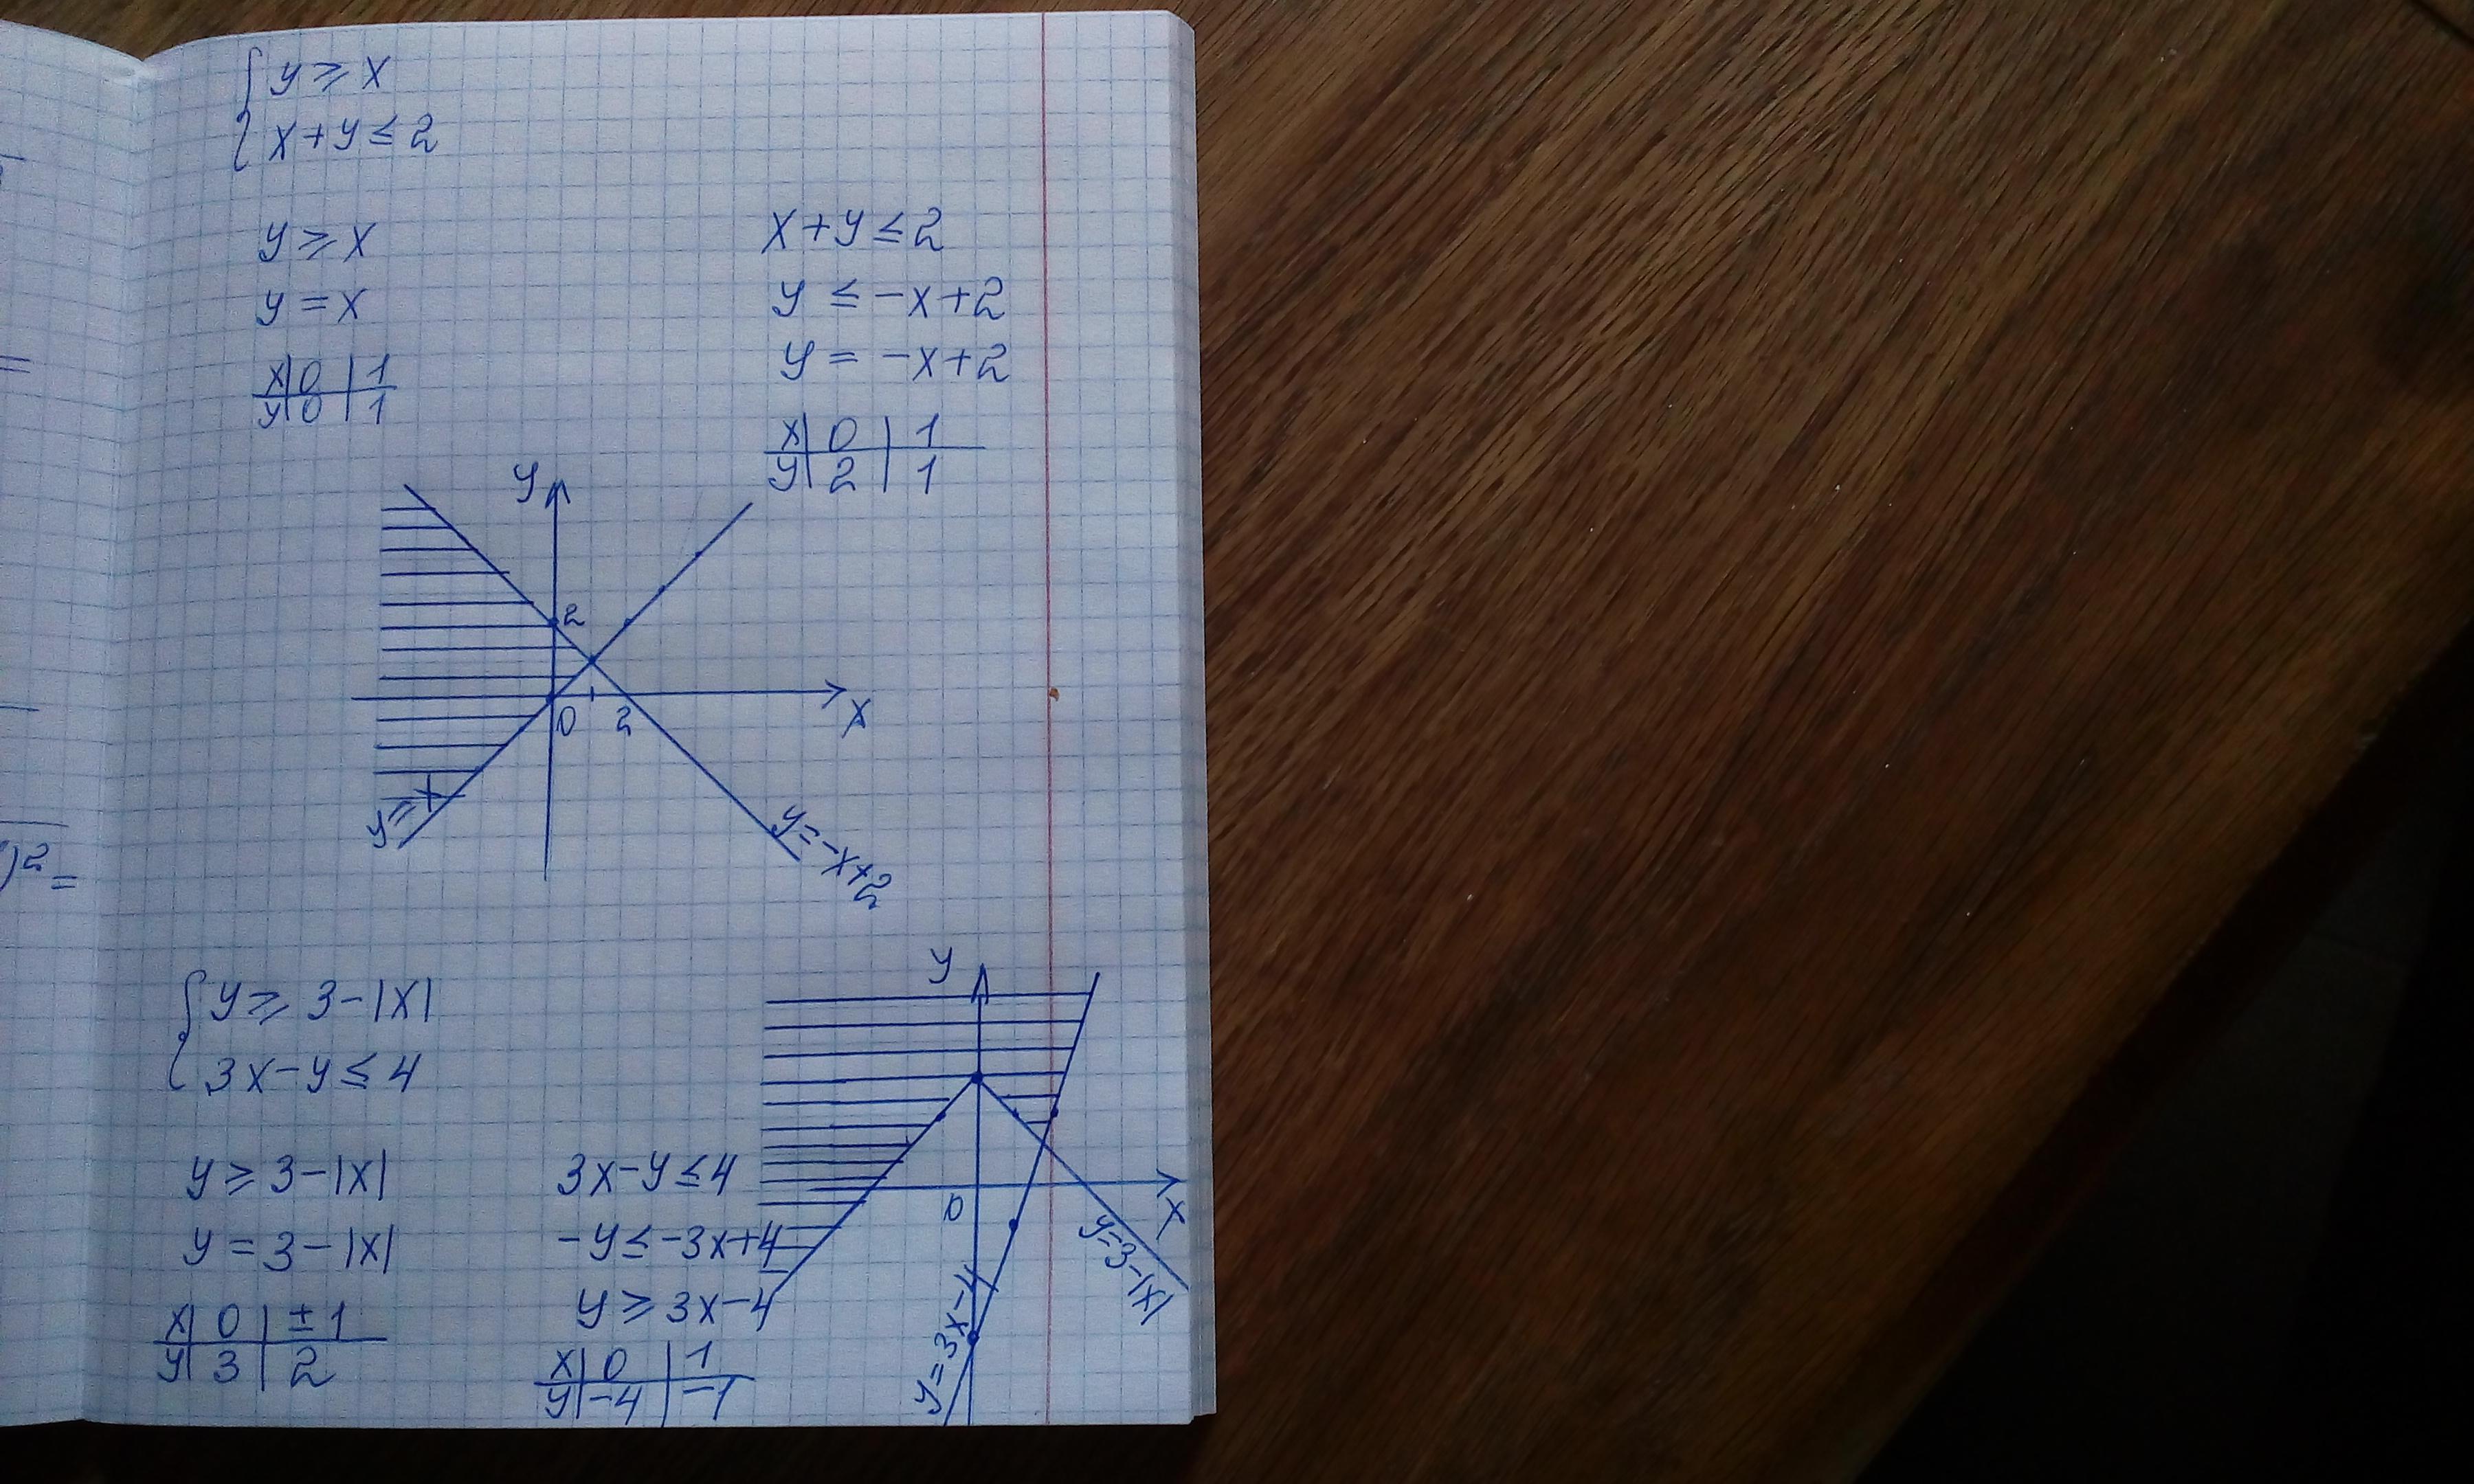 { y ≥ x
{ x + y ≤ 2
y ≥ x
y = x
x | 0 | 1
y | 0 | 1
x + y ≤ 2
y ≤ -x + 2
y = -x + 2
x | 0 | 1
y | 2 | 1
y
2
0 2 x
y = x
y = -x + 2
{ y ≥ 3 - |x|
{ 3x - y ≤ 4
y ≥ 3 - |x|
y = 3 - |x|
x | 0 | ±1
y | 3 | 2
3x - y ≤ 4
-y ≤ -3x + 4
y ≥ 3x - 4
x | 0 | 1
y | -4 | -1
y
0 x
y = 3 - |x|
y = 3x - 4
)² =